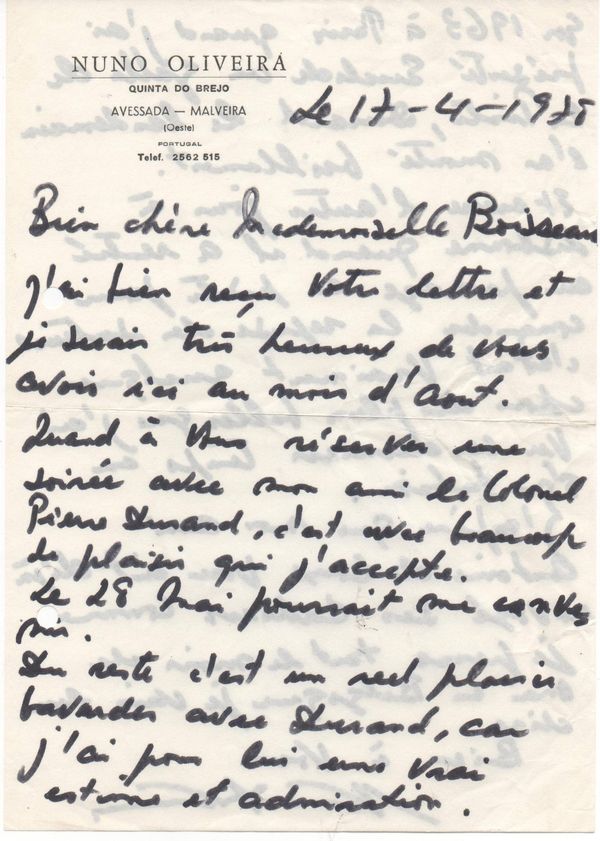 NUNO OLIVEIRA
QUINTA DO BREJO
AVESSADA — MALVEIRA
(Oeste)
PORTUGAL
Telef. 2562 515
Le 17-4-1975
Bien chère Mademoiselle Boisseau
j'ai bien reçu votre lettre et
je serais très heureux de vous
avoir ici au mois d'Aout.
Quand à vous réserver une
soirée avec mon ami le Colonel
Pierre Durand, c'est avec beaucoup
de plaisir que j'accepte.
Le 28 Mai pourrait me conve
nir.
Du reste c'est un reel plaisir
bavarder avec Durand, car
j'ai pour lui une vrai
estime et admiration.